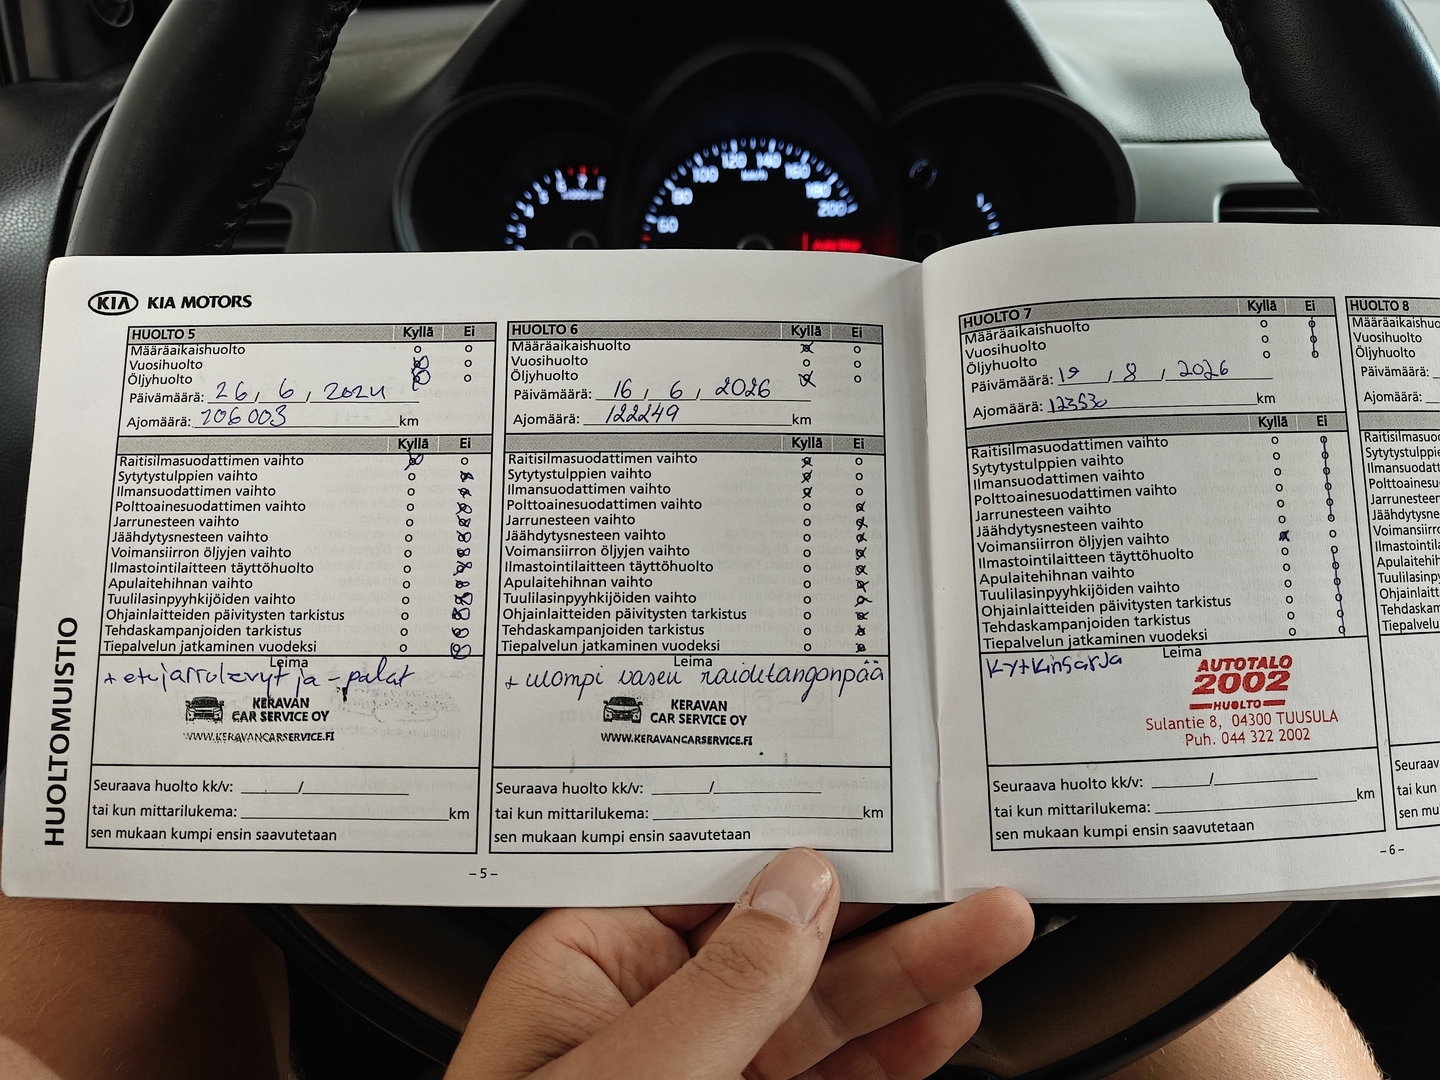 60 80 100 120 140 160 180 200
km/h
KIA KIA MOTORS
HUOLTOMUISTIO
HUOLTO 5 Kyllä Ei
Määräaikaishuolto
Vuosihuolto
Öljyhuolto
Päivämäärä: 26, 6, 2024
Ajomäärä: 106003 km
Kyllä Ei
Raitisilmasuodattimen vaihto
Sytytystulppien vaihto
Ilmansuodattimen vaihto
Polttoainesuodattimen vaihto
Jarrunesteen vaihto
Jäähdytysnesteen vaihto
Voimansiirron öljyjen vaihto
Ilmastointilaitteen täyttöhuolto
Apulaitehihnan vaihto
Tuulilasinpyyhkijöiden vaihto
Ohjainlaitteiden päivitysten tarkistus
Tehdaskampanjoiden tarkistus
Tiepalvelun jatkaminen vuodeksi
Leima
+ etujarrulevyt ja -palat
KERAVAN
CAR SERVICE OY
WWW.KERAVANCARSERVICE.FI
Seuraava huolto kk/v: /
tai kun mittarilukema: km
sen mukaan kumpi ensin saavutetaan
HUOLTO 6 Kyllä Ei
Määräaikaishuolto
Vuosihuolto
Öljyhuolto
Päivämäärä: 16, 6, 2026
Ajomäärä: 122249 km
Kyllä Ei
Raitisilmasuodattimen vaihto
Sytytystulppien vaihto
Ilmansuodattimen vaihto
Polttoainesuodattimen vaihto
Jarrunesteen vaihto
Jäähdytysnesteen vaihto
Voimansiirron öljyjen vaihto
Ilmastointilaitteen täyttöhuolto
Apulaitehihnan vaihto
Tuulilasinpyyhkijöiden vaihto
Ohjainlaitteiden päivitysten tarkistus
Tehdaskampanjoiden tarkistus
Tiepalvelun jatkaminen vuodeksi
Leima
+ ulompi vasen raidetangonpää
KERAVAN
CAR SERVICE OY
WWW.KERAVANCARSERVICE.FI
Seuraava huolto kk/v: /
tai kun mittarilukema: km
sen mukaan kumpi ensin saavutetaan
- 5 -
HUOLTO 7 Kyllä Ei
Määräaikaishuolto
Vuosihuolto
Öljyhuolto
Päivämäärä: 19, 8, 2026
Ajomäärä: 123530 km
Kyllä Ei
Raitisilmasuodattimen vaihto
Sytytystulppien vaihto
Ilmansuodattimen vaihto
Polttoainesuodattimen vaihto
Jarrunesteen vaihto
Jäähdytysnesteen vaihto
Voimansiirron öljyjen vaihto
Ilmastointilaitteen täyttöhuolto
Apulaitehihnan vaihto
Tuulilasinpyyhkijöiden vaihto
Ohjainlaitteiden päivitysten tarkistus
Tehdaskampanjoiden tarkistus
Tiepalvelun jatkaminen vuodeksi
Leima
AUTOTALO
2002
HUOLTO
Sulantie 8, 04300 TUUSULA
Puh. 044 322 2002
Seuraava huolto kk/v: /
tai kun mittarilukema: km
sen mukaan kumpi ensin saavutetaan
- 6 -
HUOLTO 8
Määräaikaishuo
Vuosihuolto
Öljyhuolto
Päivämäärä:
Ajomäärä: